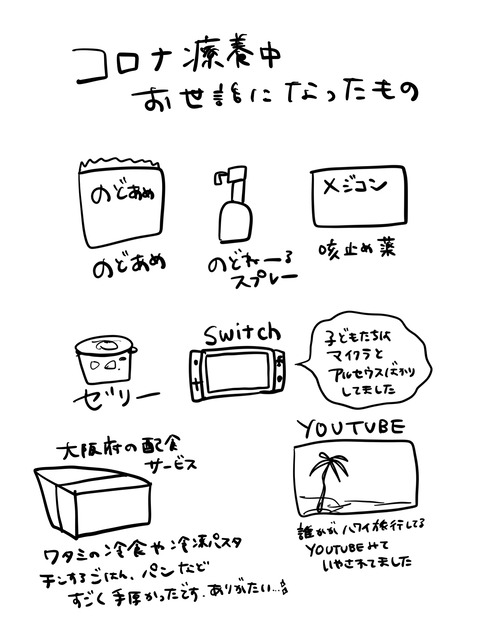 コロナ療養中
お世話になったもの
のどあめ
のどあめ
のどぬーる
スプレー
メジコン
咳止め薬
ゼリー
Switch
子どもたちは
マイクラと
アルセウスばかり
してました
大阪府の配食
サービス
ワタミの冷食や冷凍パスタ
チンするごはん、パンなど
すごく手厚かったです。ありがたい…
YOUTUBE
誰かがハワイ旅行してる
YOUTUBEみて
いやされてました